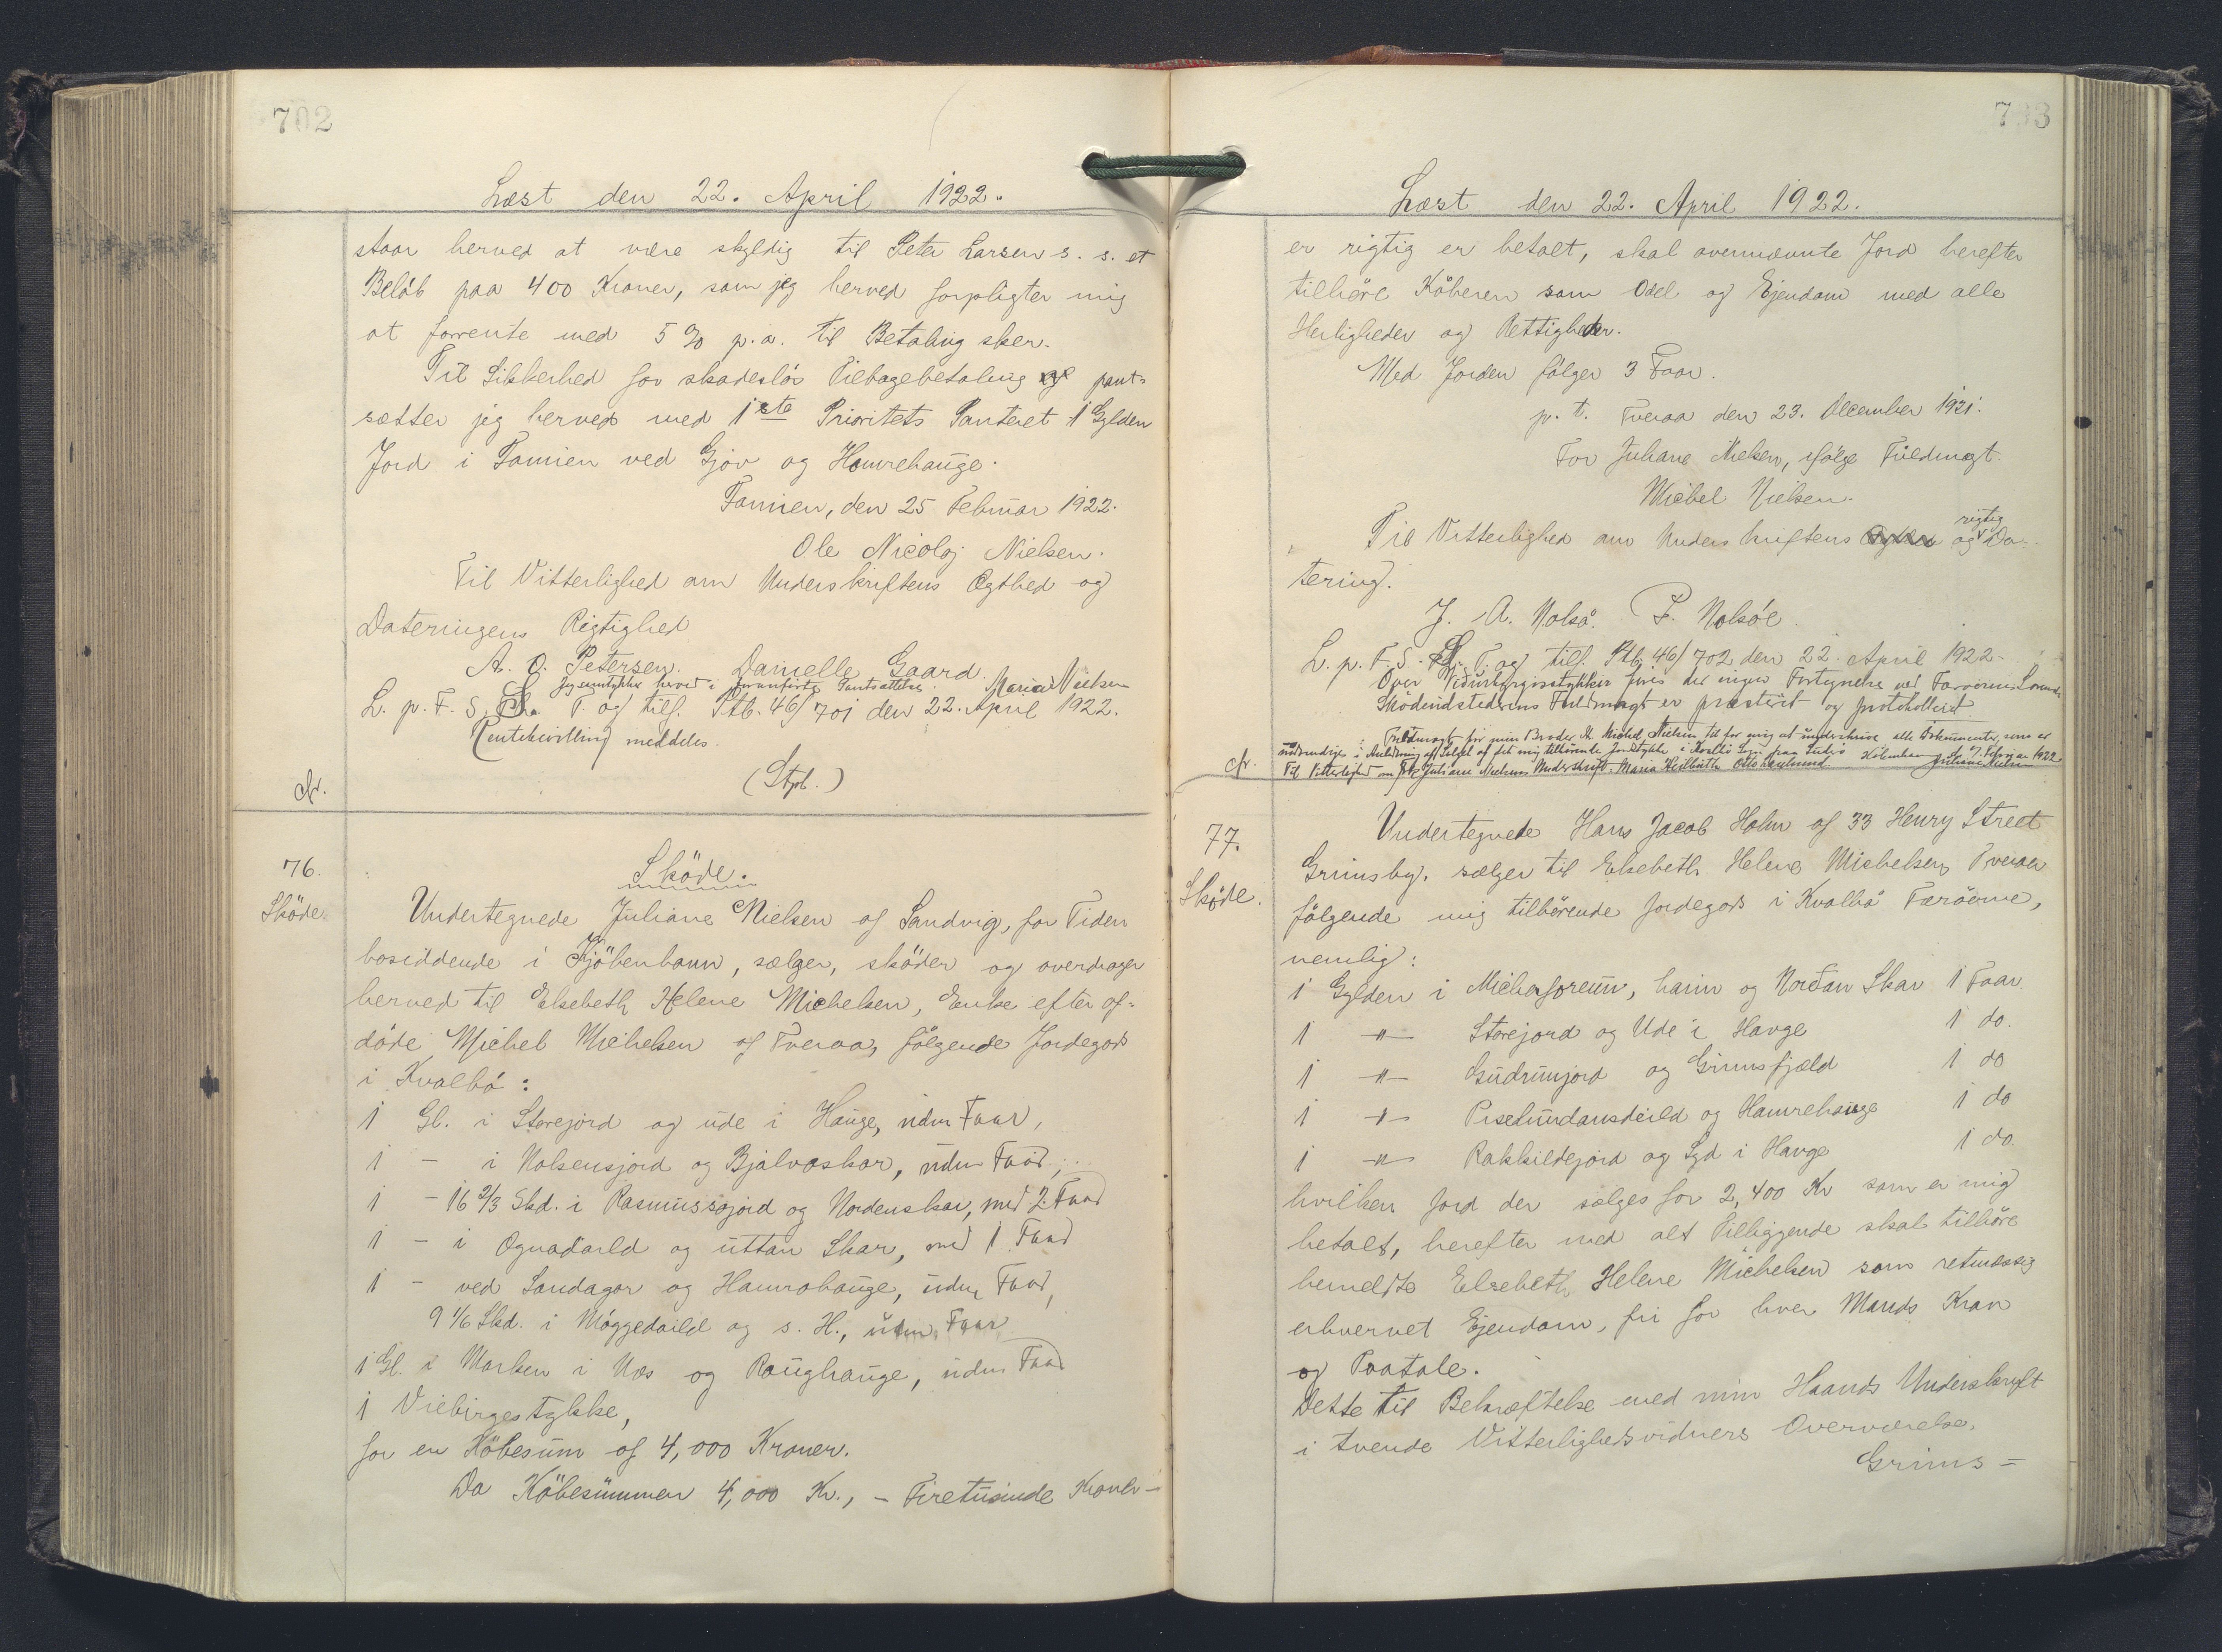 702
Læst den 22. April 1922.
staar herved at være skyldig til Peter Larsen s. s. et
Beløb paa 400 Kroner, som jeg herved forpligter mig
at forrente med 5 % p.a. til Betaling sker.
Til Sikkerhed for skadesløs Tilbagebetaling pant-
sætter jeg herved med 1ste Prioritets Panteret 1 Gylden
Jord i Famien ved Gjøv og Hamrehauge.
Famien, den 25 Februar 1922.
Ole Nicolaj Nielsen.
Til Vitterlighed om Underskriftens Ægthed og
Dateringens Rigtighed
A. O. Petersen. Danielle Gaard.
Jeg samtykker herved i foranførte Pantsættelse. Maria Nielsen
L. p. F. S. T. og tilf. Ptb. 46/701 den 22. April 1922.
Rentebevilling meddeles.
(Stpl.)
cfr.
76.
Sköde.
Sköde.
Undertegnede Juliane Nielsen af Sandvig, for Tiden
bosiddende i Kjöbenhavn, sælger, sköder og overdrager
herved til Elsebeth Helene Michelsen, Enke efter af-
döde Michel Michelsen af Tveraa, fölgende Jordegods
i Kvalbø:
1 Gl. i Storejord og ude i Hauge, uden Faar,
1 - i Nolsensjord og Bjalvaskor, uden Faar,
1 - 16 2/3 Skd. i Rasmussojord og Nordenskar, med 2 Faar
1 - i Ognadaild og uttan Skar, med 1 Faar
1 - ved Sandagar og Hamrahauge, uden Faar,
9 1/6 Skd. i Møggedaild og s. H., uden Faar
1 Gl. i Marken i Nes og Raughauge, uden Faar
1 Viebirgestykke,
for en Köbesum af 4,000 Kroner.
Da Köbesummen 4,000 Kr., - Firetusinde Kroner -
703
Læst den 22. April 1922.
er rigtig er betalt, skal ovennævnte Jord herefter
tilhøre Köberen som Odel og Ejendom med alle
Herligheder og Rettigheder.
Med Jorden fölger 3 Faar.
p. t. Tveraa den 23. December 1921.
For Juliane Nielsen, ifølge Fuldmagt.
Michel Nielsen.
Til Vitterlighed om Underskriftens og rigtig Da-
tering.
J. A. Nolsø. P. Nolsöe.
L. p. F. S. T. og tilf. Ptb. 46/702 den 22. April 1922.
Over findes der ingen
Skødeudstederens Fuldmagt er præsteret og protokolleret.
Fuldmagt for min Broder Michel Nielsen til for mig at underskrive alle Dokumenter, som er
nødvendige i Anledning af Salget af det mig tilhørende Jordstykke i Kvalbø Sogn paa Suderø København d. 7. Februar 1922
Til Vitterlighed om Juliane Nielsens Underskrift. Maria Juliane Nielsen
cfr.
77.
Sköde.
Undertegnede Hans Jacob Holm af 33 Henry Street
Grimsby, sælger til Elsebeth Helene Michelsen Tveraa
fölgende mig tilhörende Jordegods i Kvalbø Færöerne,
nemlig:
1 Gylden i , haim og Nordan Skar 1 Faar
1 -"- Storejord og Ude i Havge 1 do.
1 -"- Gudrunjord og Grimsfjæld 1 do
1 -"- og Hamrehauge 1 do
1 -"- Rakkildejord og Syd i Havge 1 do.
hvilken Jord der sælges for 2,400 Kr som er mig
betalt, herefter med alt Tilliggende skal tilhøre
bemeldte Elsebeth Helene Michelsen som retmæssig
erhvervet Ejendom, fri for hver Mands Krav
og Paatale.
Dette til Bekræftelse med min Haands Underskrift
i tvende Vitterlighedsvidners Overværelse.
Grims=